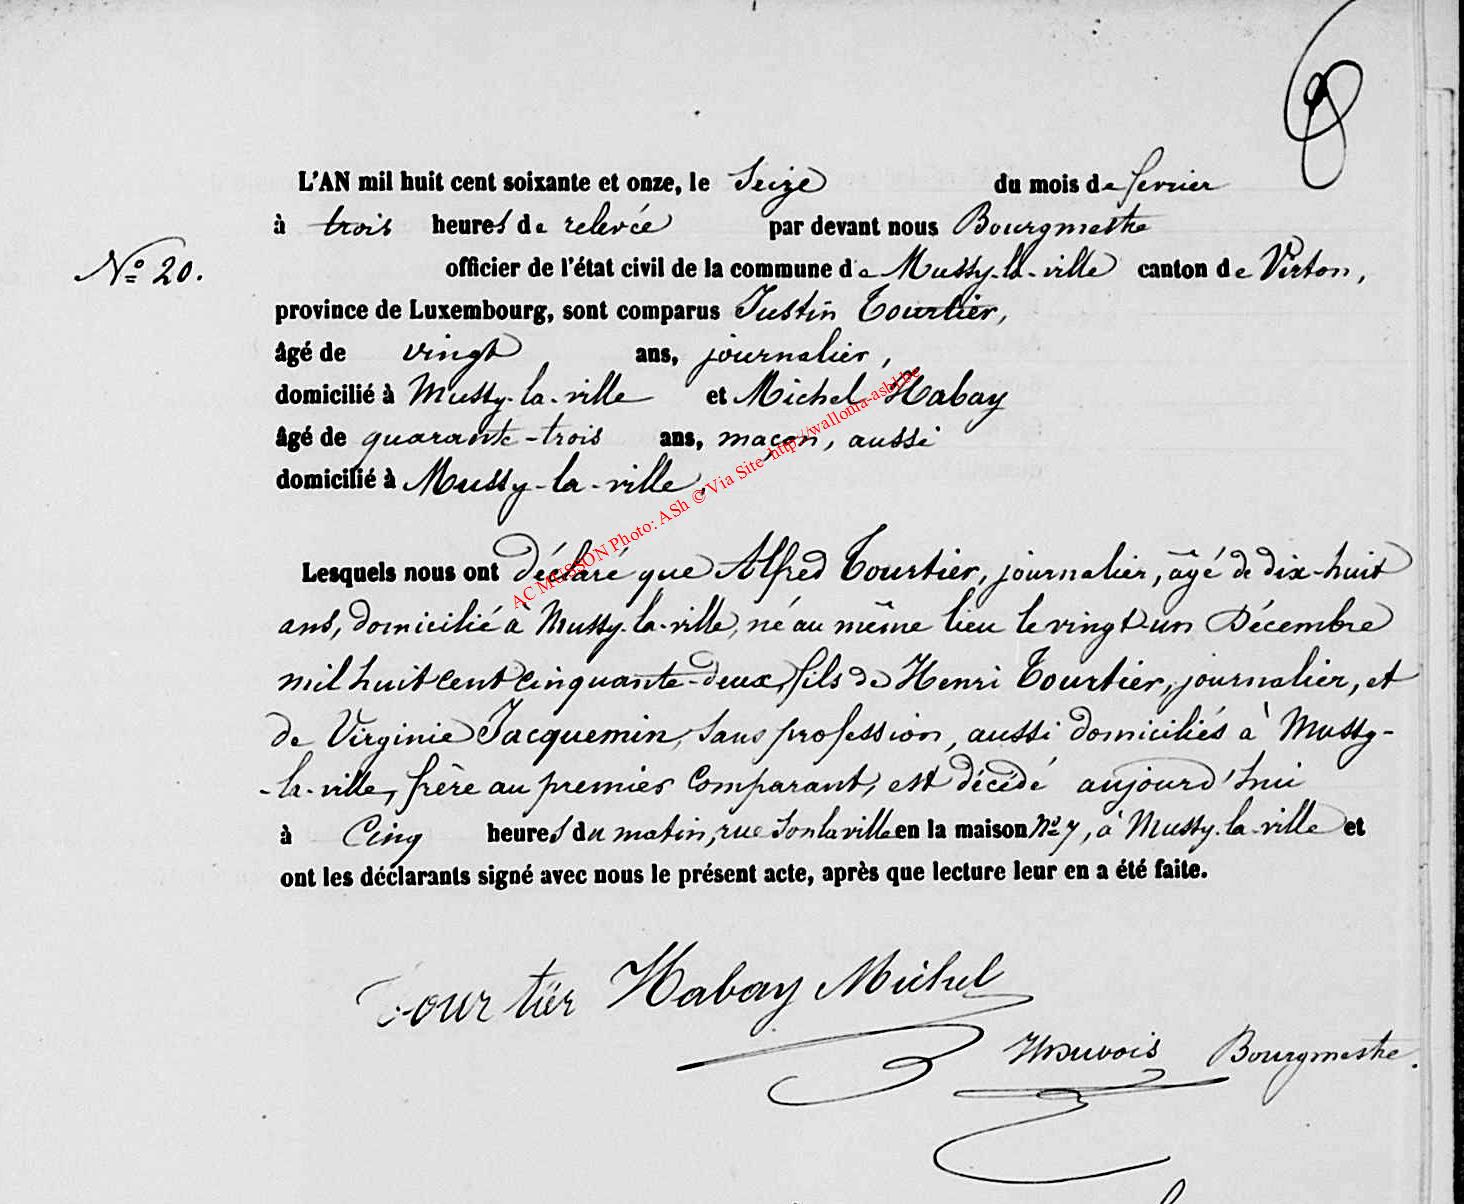 L'AN mil huit cent soixante et onze, le Seize du mois de fevrier
à trois heures de relevée par devant nous Bourgmestre
N° 20.
officier de l'état civil de la commune de Mussy-la-ville canton de Virton,
province de Luxembourg, sont comparus Justin Tourtier,
âgé de vingt ans, journalier,
domicilié à Mussy-la-ville et Michel Habay
âgé de quarante-trois ans, maçon, aussi
domicilié à Mussy-la-ville,
AC MUSSON Photo: ASh © Via Site http://wallonia-asbl.be
Lesquels nous ont déclaré que Alfred Tourtier, journalier, âgé de dix-huit
ans, domicilié à Mussy-la-ville, né au même lieu le vingt-un Décembre
mil huit cent cinquante-deux, fils de Henri Tourtier, journalier, et
de Virginie Jacquemin, sans profession, aussi domiciliés à Mussy-
-la-ville, frère au premier Comparant, est décédé aujourd'hui
à Cinq heures du matin, rue Sonlaville en la maison N° 7, à Mussy-la-ville et
ont les déclarants signé avec nous le présent acte, après que lecture leur en a été faite.
Tourtier Habay Michel
Bourgmestre.